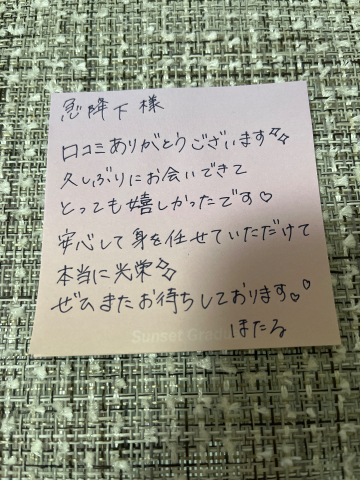 急降下様
口コミありがとうございます✨
久しぶりにお会いできて
とっても嬉しかったです♡
安心して身を任せていただけて
本当に光栄✨
ぜひまたお待ちしております♡♡
ほたる
Sunset Grad